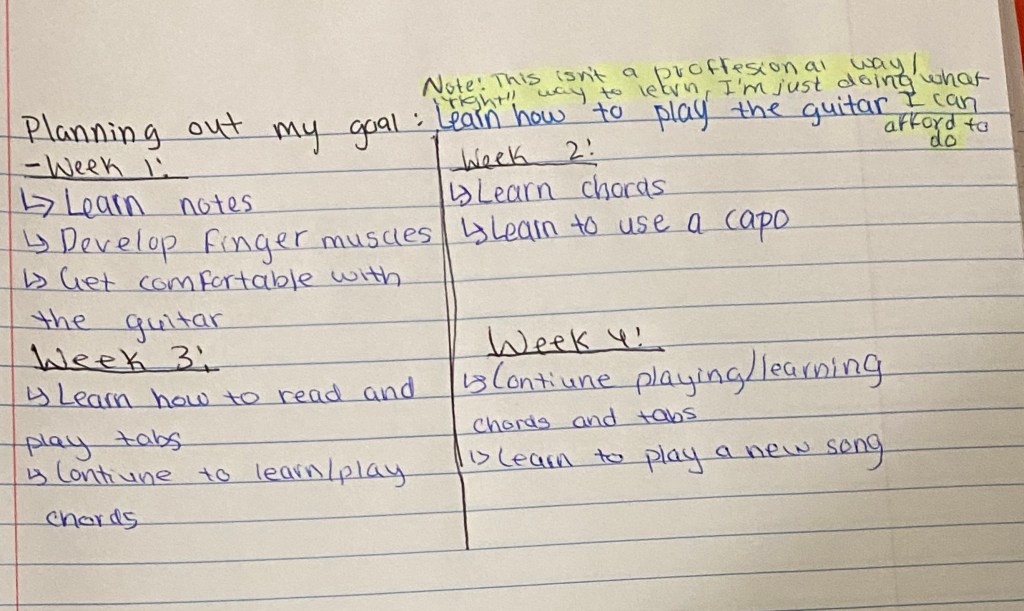 Note: This isn't a proffesional way/
"right" way to learn, I'm just doing what
I can
afford to
do
Planning out my goal: Learn how to play the guitar
- Week 1:
↳ Learn notes
↳ Develop finger muscles
↳ Get comfortable with
the guitar
Week 2:
↳ Learn chords
↳ Learn to use a capo
Week 3:
↳ Learn how to read and
play tabs
↳ Contiune to learn/play
chords
Week 4:
↳ Contiune playing/learning
chords and tabs
↳ Learn to play a new song